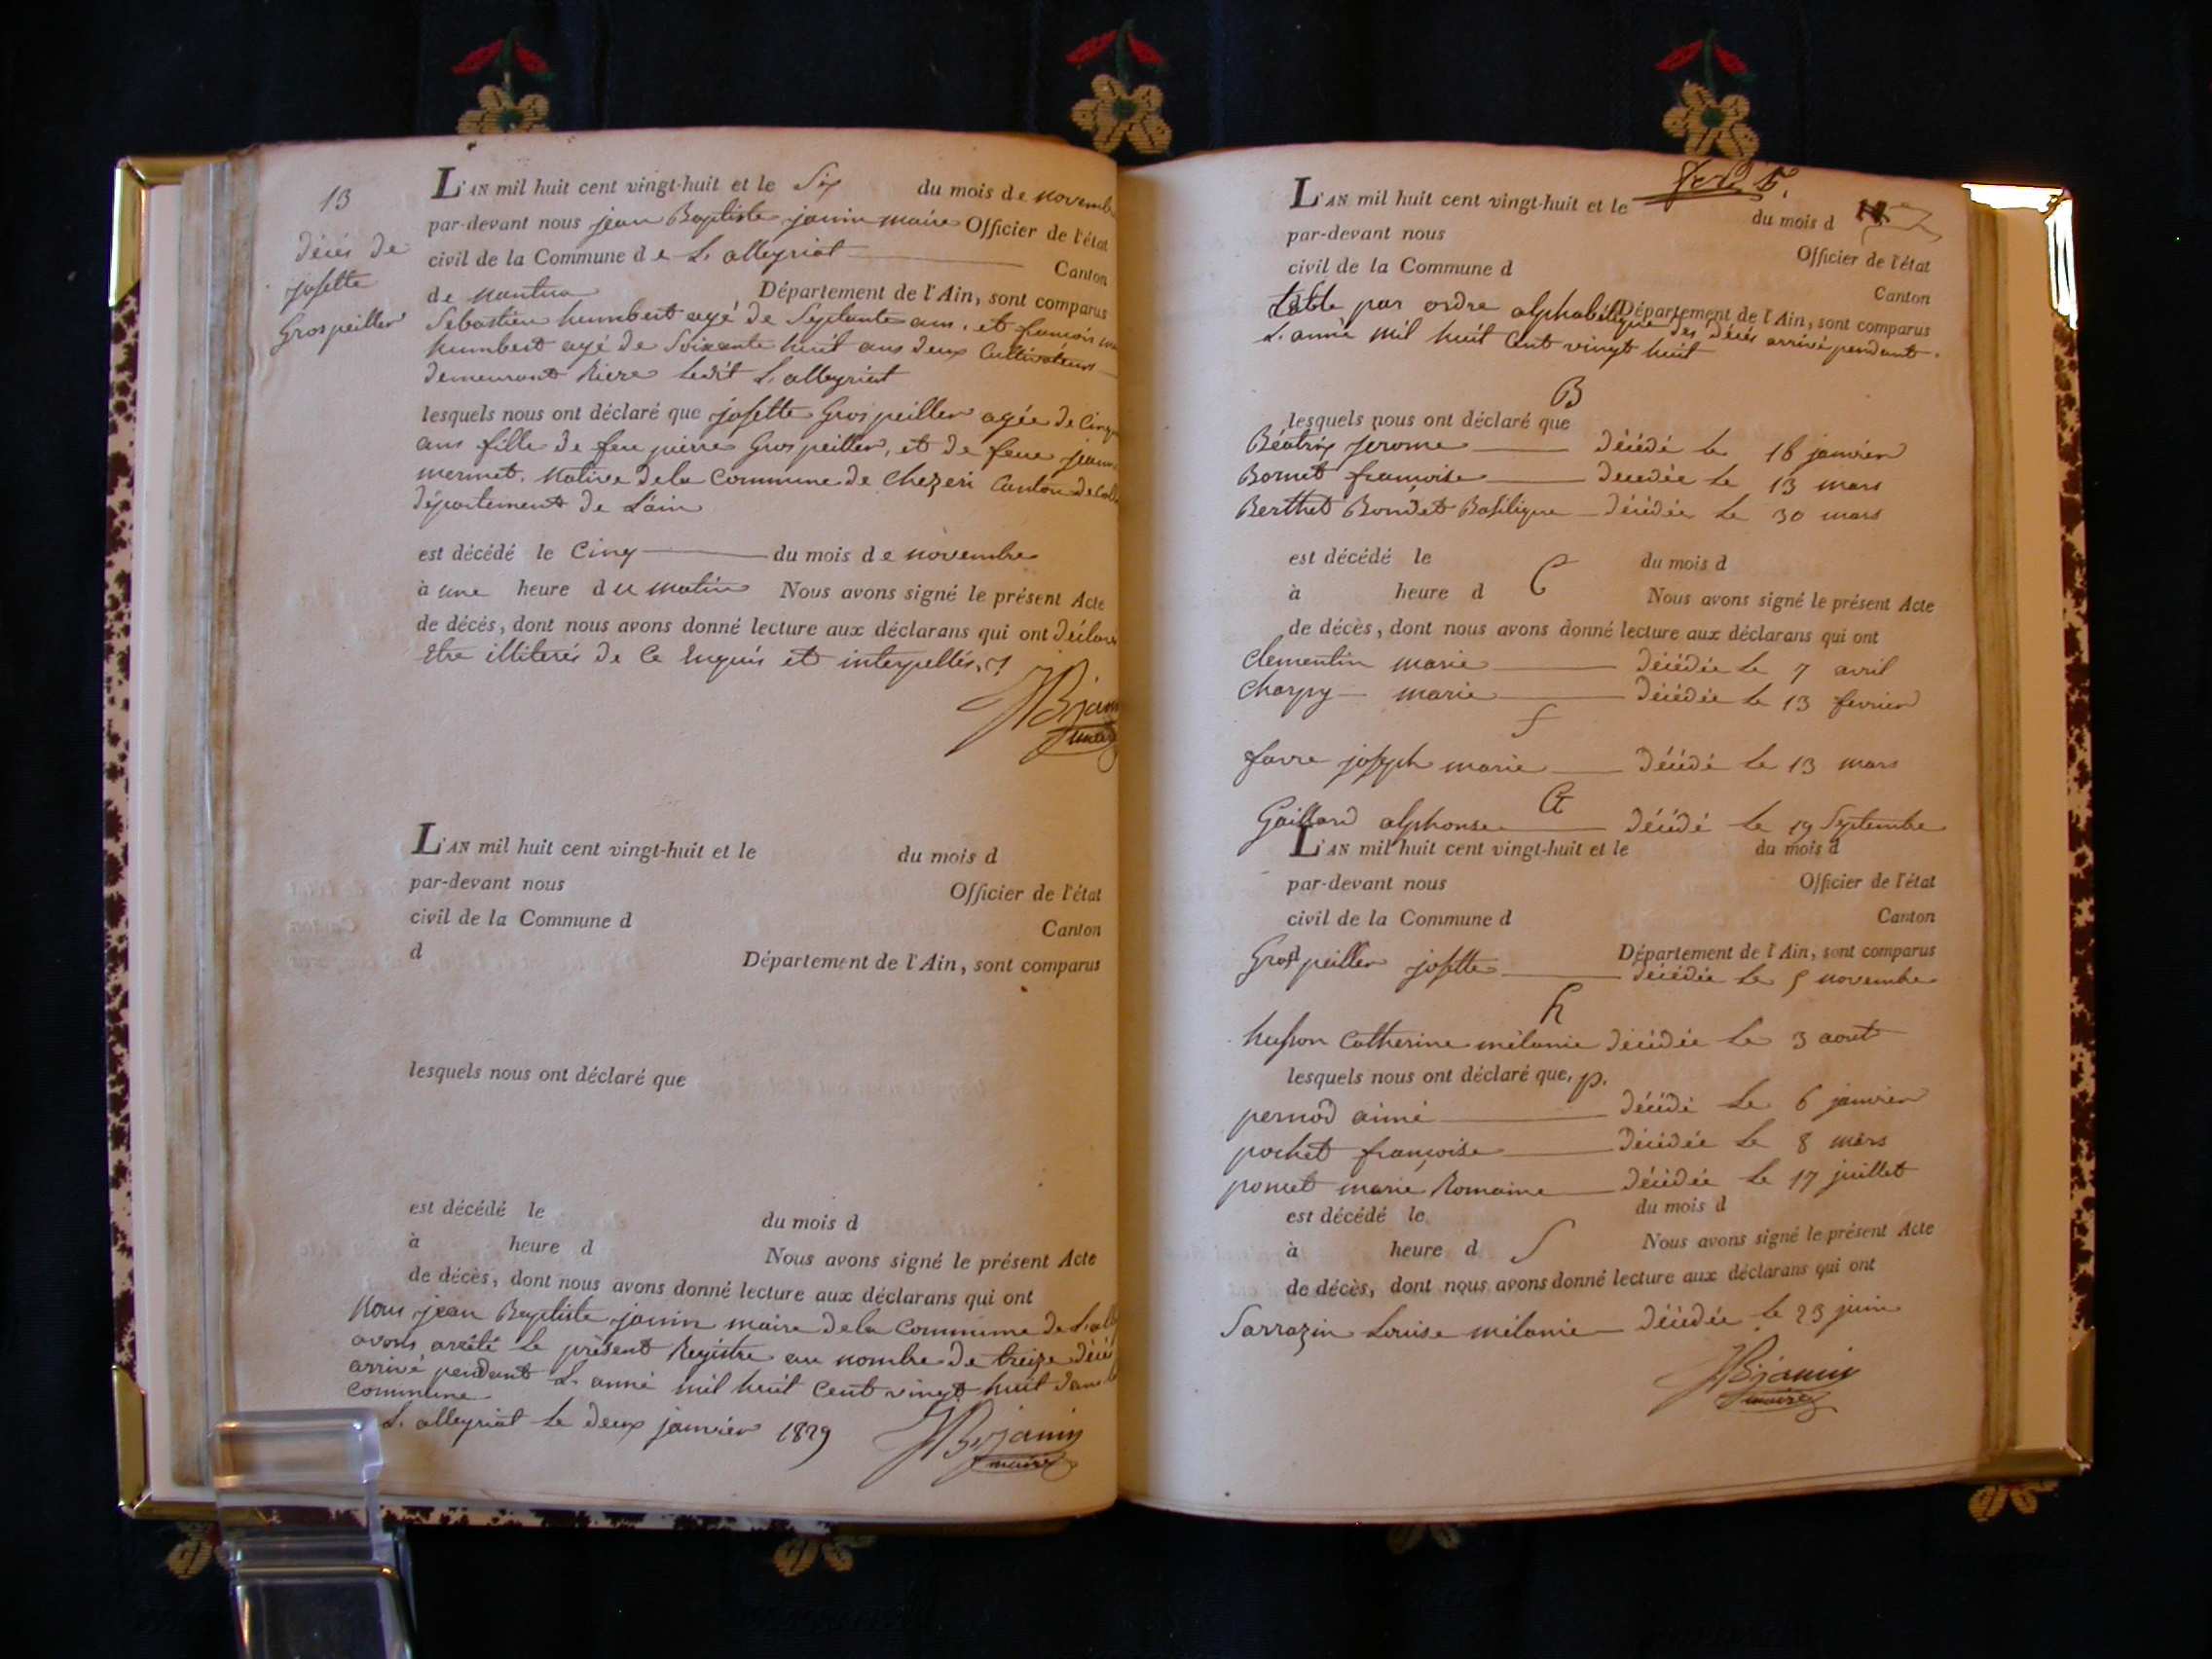 13
décès de
josette
Grospeiller
L'AN mil huit cent vingt-huit et le Six du mois de novemb
par-devant nous jean Baptiste janin maire Officier de l'état
civil de la Commune de L'alleyriat Canton
de nantua Département de l'Ain, sont comparus
Sebastien humbert agé de Septante ans, et françois
humbert agé de Soixante huit ans deux Cultivateurs
demeurant Riere ledit L'alleyriat
lesquels nous ont déclaré que josette Grospeiller agée de
ans fille de feu pierre Grospeiller, et de feue
mermet. Native de la Commune de Chezeri Canton de
département de L'ain
est décédé le Cinq du mois de novembre
à une heure du matin Nous avons signé le présent Acte
de décès, dont nous avons donné lecture aux déclarans qui ont
Etre illiterés de Ce Enquis et interpellés
JB janin
maire
L'AN mil huit cent vingt-huit et le du mois d
par-devant nous Officier de l'état
civil de la Commune d Canton
d Département de l'Ain, sont comparus
lesquels nous ont déclaré que
est décédé le du mois d
à heure d Nous avons signé le présent Acte
de décès, dont nous avons donné lecture aux déclarans qui ont
Nous jean Baptiste janin maire de la Commune de
avons arêté Le présent Registre au nombre de treize décé
arrivé pendant L'anné mil huit Cent vingt huit dans
Commune
L'alleyriat Le deux janvier 1829
JB janin
maire
L'AN mil huit cent vingt-huit et le du mois d
par-devant nous Officier de l'état
civil de la Commune d Canton
Département de l'Ain, sont comparus
table par ordre alphabétique des décès arrivé pendant
L'année mil huit Cent vingt huit
B
lesquels nous ont déclaré que
Béatrix jerome décédé le 16 janvier
Bornet françoise decedée Le 13 mars
Berthet Bondet Basilique décédée Le 30 mars
est décédé le du mois d
à heure d C Nous avons signé le présent Acte
de décès, dont nous avons donné lecture aux déclarans qui ont
Clementin marie décédée Le 7 avril
Charpy marie décédée Le 13 fevrier
f
favre joseph marie décédé Le 13 mars
G
Gaillard alphonse décédé Le 19 Septembre
L'AN mil huit cent vingt-huit et le du mois d
par-devant nous Officier de l'état
civil de la Commune d Canton
Département de l'Ain, sont comparus
Grospeiller josette décédée Le 5 novembre
h
husson Catherine mélanie décédée Le 3 aout
lesquels nous ont déclaré que, p.
pernod aimé décédé Le 6 janvier
pochet françoise décédée Le 8 mars
poncet marie Romaine décédée Le 17 juillet
est décédé le du mois d
à heure d S Nous avons signé le présent Acte
de décès, dont nous avons donné lecture aux déclarans qui ont
Sarrazin Louise mélanie décédée Le 23 juin
JB janin
maire